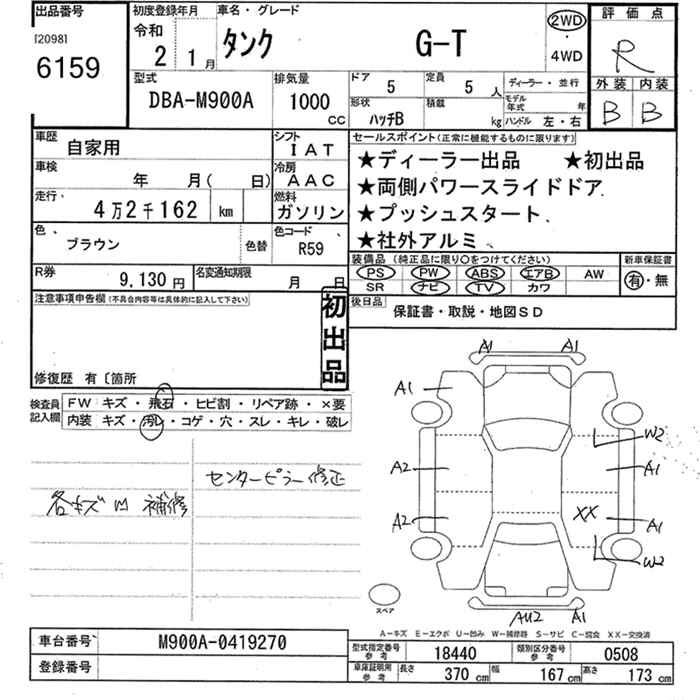 出品番号
[2098]
6159
初度登録年月
令和
2 1月
車名・グレード
タンク G-T
2WD
・
4WD
評価点
R
外装 内装
B B
型式
DBA-M900A
排気量
1000
CC
ドア 5
定員 5 人
形状 ハッチB
積載 kg
ディーラー・並行
モデル年式 年
ハンドル 左・右
車歴 自家用
シフト IAT
車検 年 月( 日)
冷房 AAC
走行 4万2千162 km
燃料 ガソリン
色 ブラウン 色替
色コード R59
R券 9,130 円
名変通知期限 月 日
セールスポイント(正常に機能するものに限ります)
★ディーラー出品 ★初出品
★両側パワースライドドア
★プッシュスタート
★社外アルミ
装備品 (純正品に限り○をつけてください)
PS PW ABS エアB AW
SR ナビ TV カワ
新車保証書
有・無
後日品
保証書・取説・地図SD
注意事項申告欄(不具合内容等は具体的に記入して下さい)
初出品
修復歴 有〔箇所
検査員記入欄
FW キズ・飛石・ヒビ割・リペア跡・×要
内装 キズ・汚レ・コゲ・穴・スレ・キレ・破レ
センターピラー修正
各キズ凹 補修
A1 A1
A1
W2
A2 A1
XX
A2 A1
W2
スペア
AU2 A1
A-キズ E-エクボ U-凹み W-補修跡 S-サビ C-腐食 XX-交換済
車台番号 M900A-0419270
登録番号
型式指定番号 参考 18440
類別区分番号 参考 0508
車庫証明用 参考 長さ 370 cm 幅 167 cm 高さ 173 cm